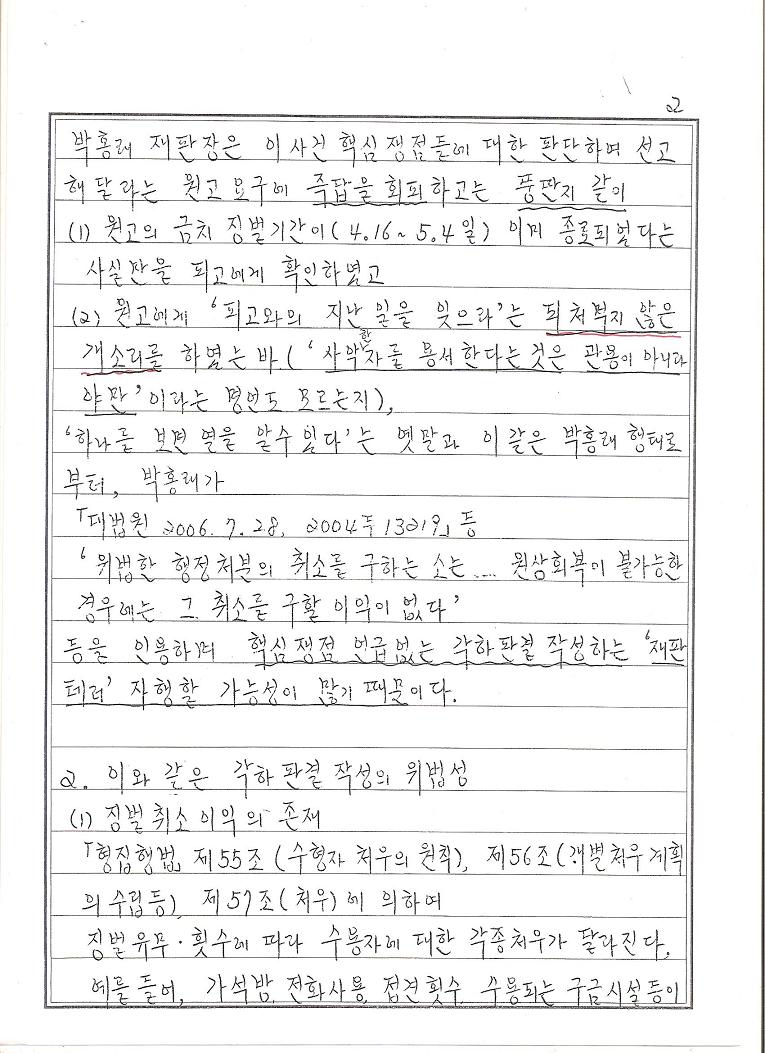 2
박홍래 재판장은 이 사건 핵심쟁점들에 대한 판단하여 선고
해 달라는 원고 요구에 즉답을 회피하고는 풍딴지 같이
(1) 원고의 금치 징벌기간이(4.16~5.4일) 이미 종료되었다는
사실만을 피고에게 확인하였고
(2) 원고에게 '피고와의 지난 일을 잊으라'는 되쳐먹지 않은
개소리를 하였는 바('사악한 자를 용서한다는 것은 관용이 아니라
야만'이라는 명언도 모르는지),
'하나를 보면 열을 알수 있다'는 옛말과 이 같은 박홍래 행태로
부터, 박홍래가
「대법원 2006.7.28, 2004두13219」등
'위법한 행정처분의 취소를 구하는 소는 .... 원상회복이 불가능한
경우에는 그 취소를 구할 이익이 없다'
등을 인용하며 핵심쟁점 언급없는 각하판결 작성하는 '재판
테러' 자행할 가능성이 많기 때문이다.
2. 이와 같은 각하판결 작성의 위법성
(1) 징벌취소 이익의 존재
「형집행법」 제55조(수형자 처우의 원칙), 제56조(개별처우계획
의 수립등), 제57조(처우)에 의하여
징벌유무·횟수에 따라 수용자에 대한 각종처우가 달라진다.
예를 들어, 가석방, 전화사용, 접견횟수, 수용되는 구금시설등이